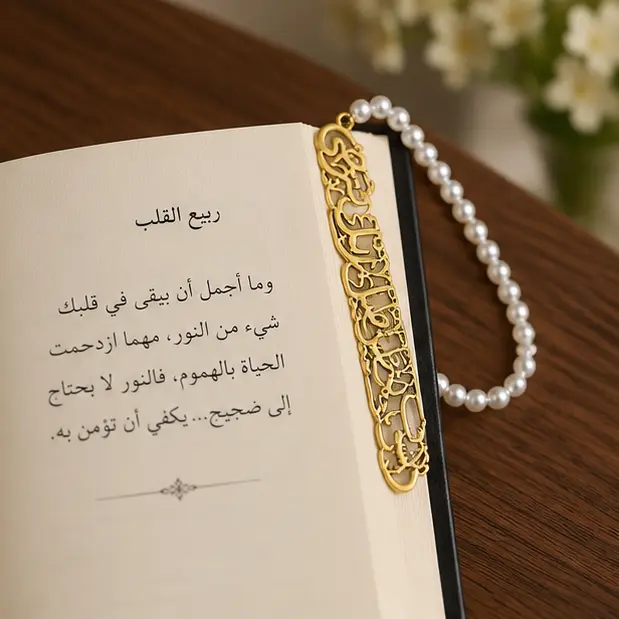 ربيع القلب
وما أجمل أن يبقى في قلبك
شيء من النور، مهما ازدحمت
الحياة بالهموم، فالنور لا يحتاج
إلى ضجيج... يكفي أن تؤمن به.